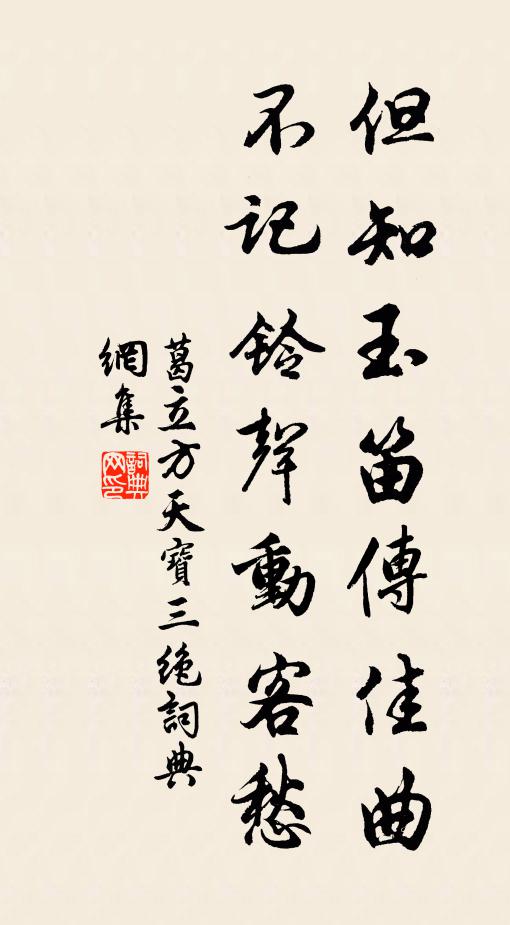 但知玉笛傳佳曲
不記鈴聲動客愁
葛立方天寶三絶詞典
網集
詞典网印